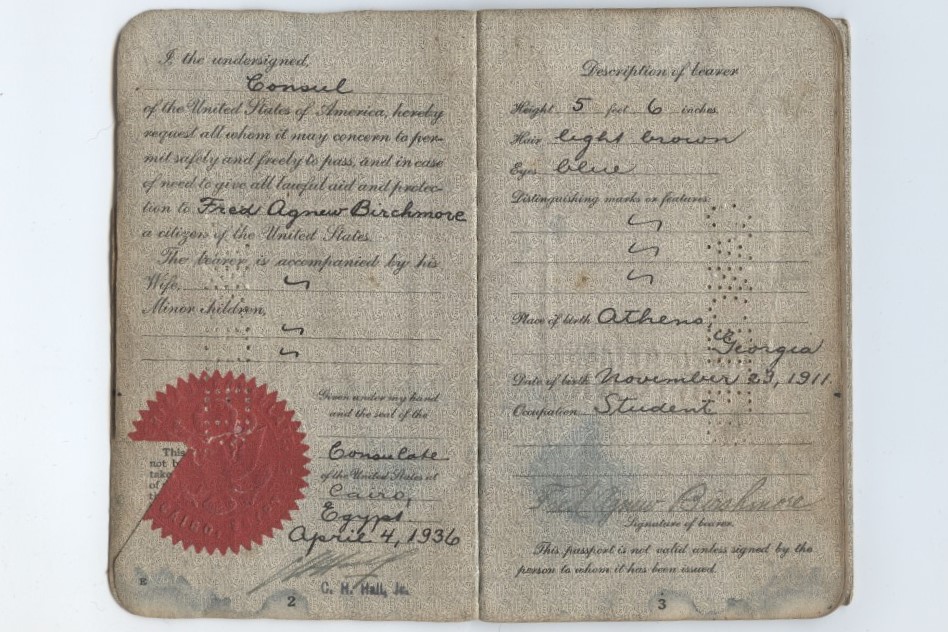 I, the undersigned,
Consul
of the United States of America, hereby
request all whom it may concern to per-
mit safely and freely to pass, and in case
of need to give all lawful aid and protec-
tion to Fred Agnew Birchmore
a citizen of the United States.
The bearer is accompanied by his
Wife,
Minor children,
Given under my hand
and the seal of the
Consulate
of the United States at
Cairo,
Egypt
April 4, 1936
C. H. Hall, Jr.
This
not b
take
of
th
CAIRO, EGYPT
E
2
Description of bearer
Height 5 feet 6 inches.
Hair light brown
Eyes blue
Distinguishing marks or features:
Place of birth Athens,
Georgia
Date of birth November 29, 1911.
Occupation Student
Fred Agnew Birchmore
Signature of bearer.
This passport is not valid unless signed by the
person to whom it has been issued.
3